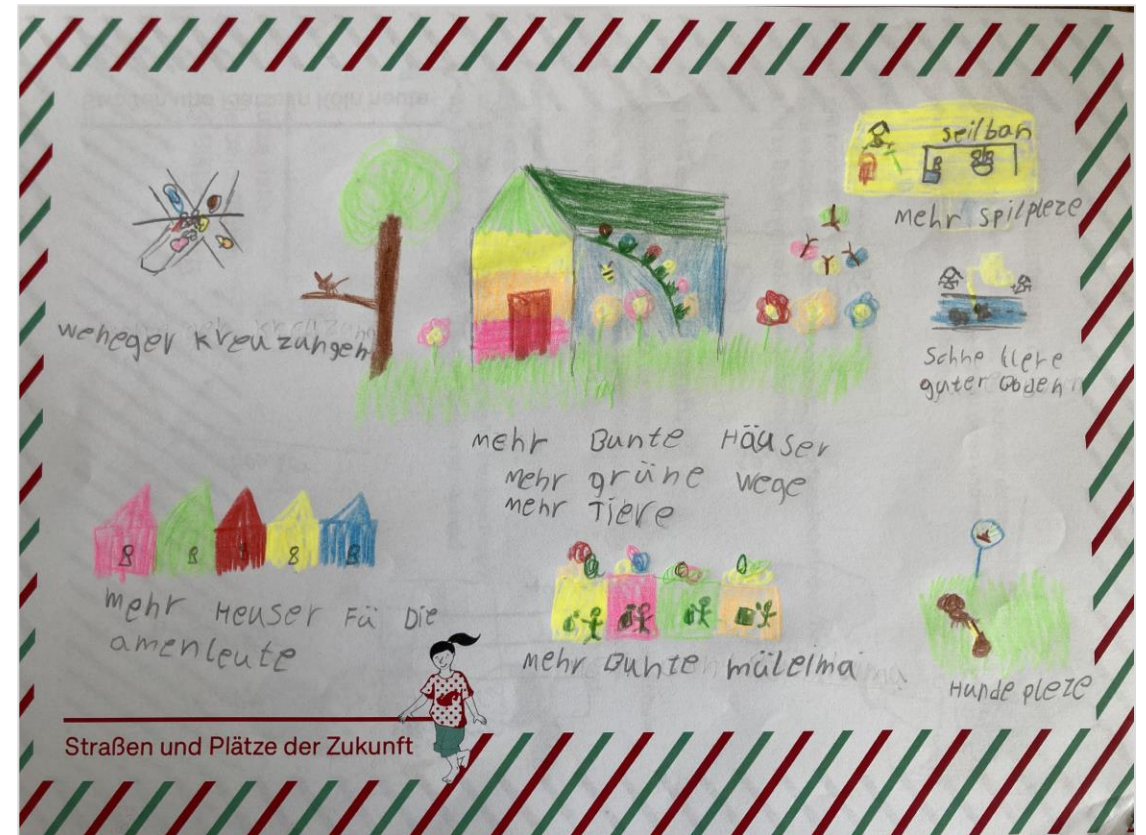 seilban
mehr spilpleze
weneger kreuzungen
guter Boden
mehr Bunte Häuser
mehr grüne wege
mehr Tiere
mehr Heuser Fü Die
amenleute
mehr Bunte müleima
Hunde pleze
Straßen und Plätze der Zukunft